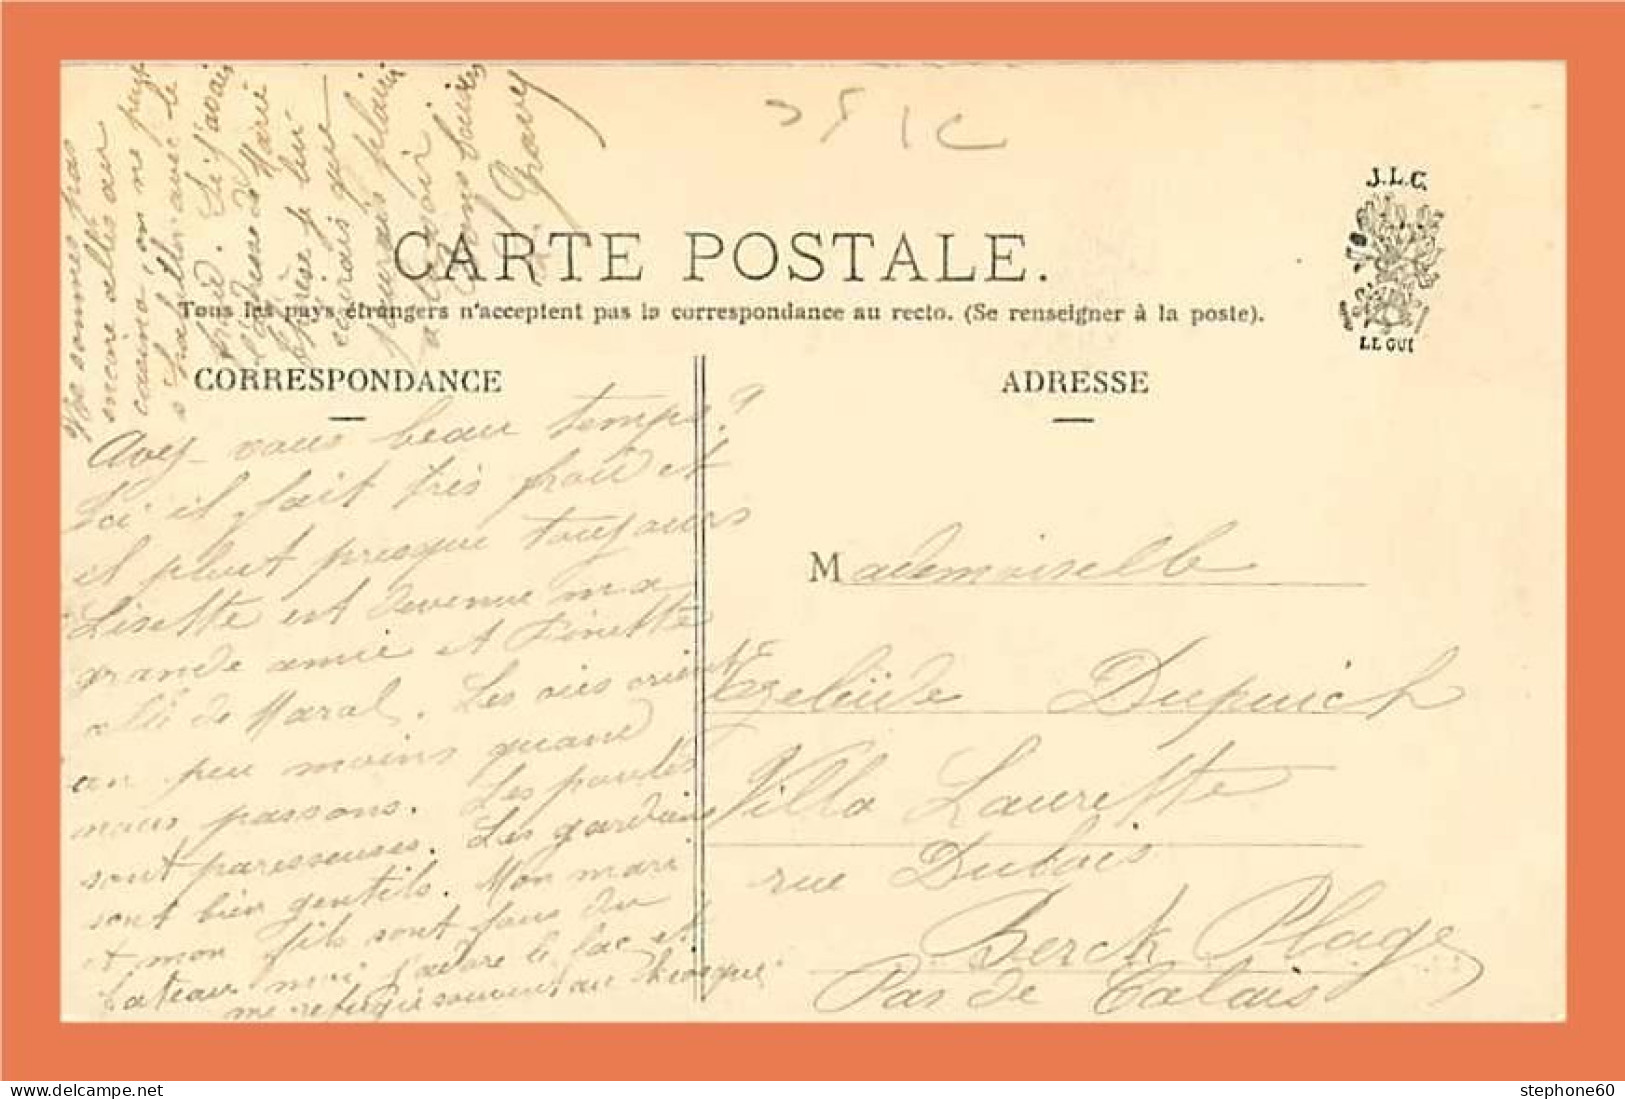 J.L.C.
LE GUI
CARTE POSTALE.
Tous les pays étrangers n'acceptent pas la correspondance au recto. (Se renseigner à la poste).
CORRESPONDANCE
ADRESSE
Avez-vous beau temps?
Ici il fait très froid et
il pleut presque toujours
Lisette est devenue ma
grande amie et Finette
de Maral. Les oies crient
un peu moins quand
nous passons. Les poules
sont paresseuses. Les gardiens
sont bien gentils. Mon mari
et mon fils sont fous du
bateau moi j'adore le lac et
me refugie souvent au kiosque
Nous sommes pas
encore allés au
casino, on ne peut
s'habiller avec le
froid. Si j'avais
l'adresse de Marie
je lui
écrirais que
j'aurais plaisir
à la voir
Bons baisers
Mademoiselle
Dupuich
Villa Laurette
rue Dubois
Berck Plage
Pas de Calais
stephone60